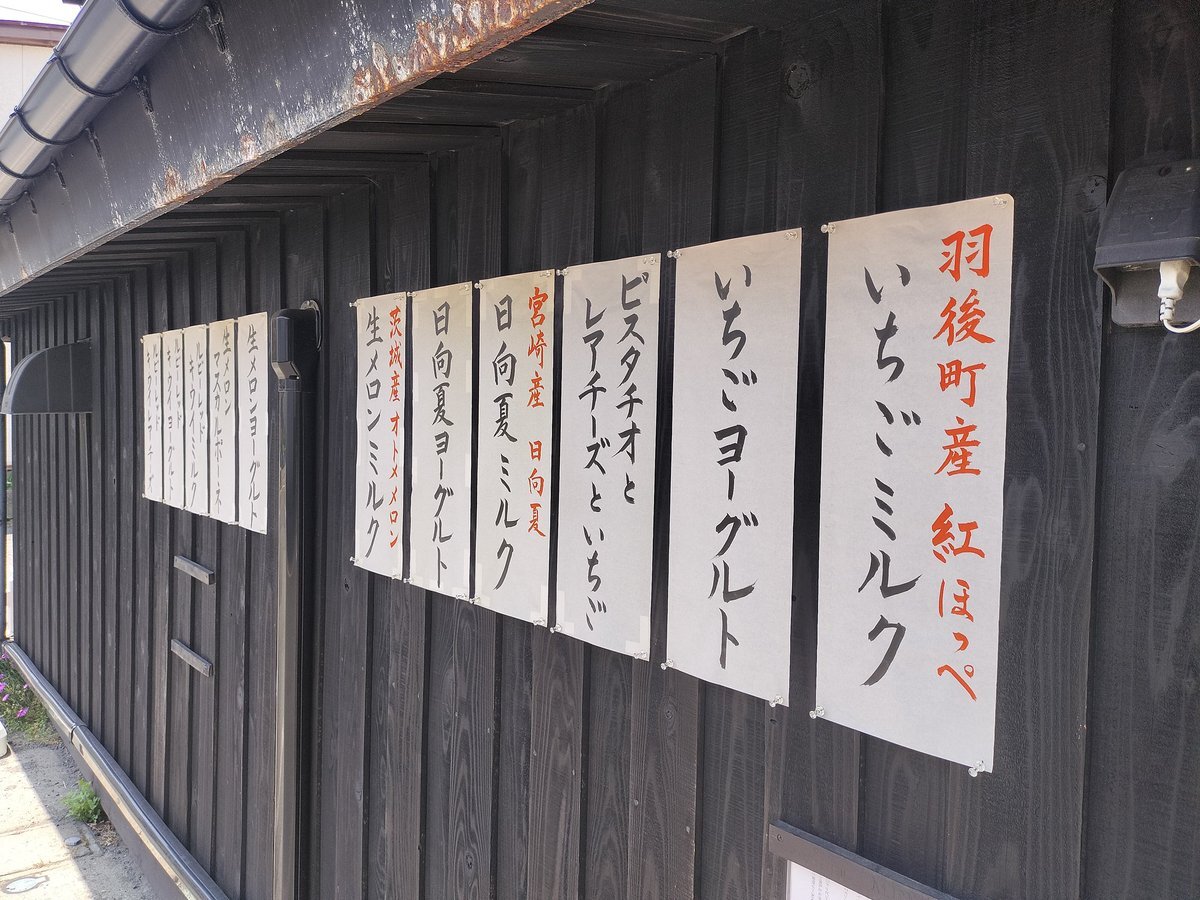 羽後町産 紅ほっぺ
いちごミルク
いちごヨーグルト
ピスタチオと
レアチーズといちご
宮崎産 日向夏
日向夏ミルク
日向夏ヨーグルト
茨城産オトメメロン
生メロンミルク
生メロンヨーグルト
生メロン
マスカルポーネ
キウイミルク